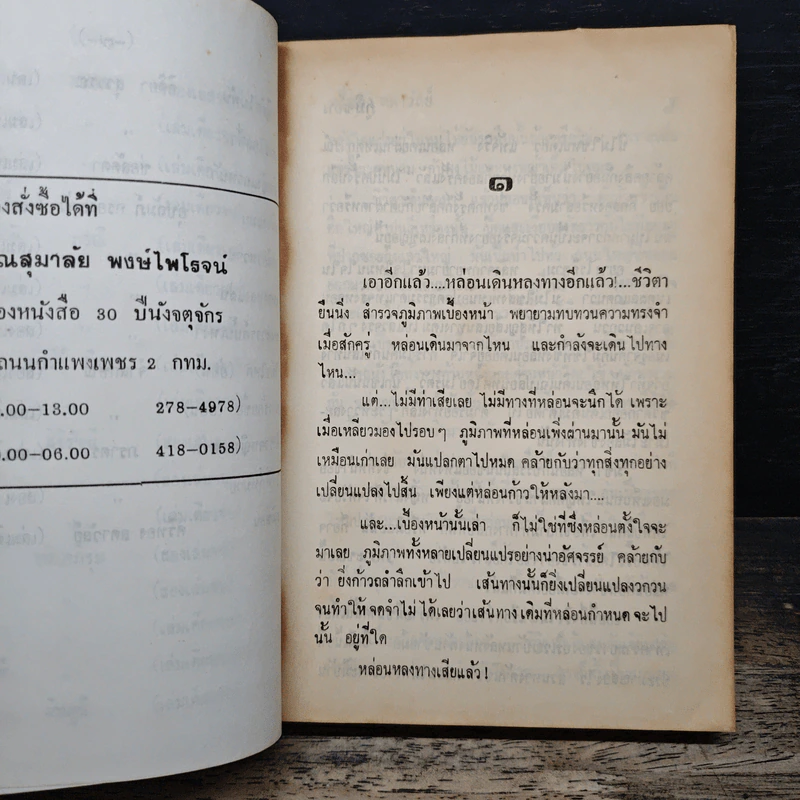 งสั่งซื้อได้ที่
ณสุมาลัย พงษ์ไพโรจน์
องหนังสือ 30 ปีนังจตุจักร
ถนนกำแพงเพชร 2 กทม.
.00-13.00 278-4978)
.00-06.00 418-0158)
๑
เอาอีกแล้ว....หล่อนเดินหลงทางอีกแล้ว!...ชีวิตา
ยืนนิ่ง สำรวจภูมิภาพเบื้องหน้า พยายามทบทวนความทรงจำ
เมื่อสักครู่ หล่อนเดินมาจากไหน และกำลังจะเดินไปทาง
ไหน...
แต่...ไม่มีท่าเสียเลย ไม่มีทางที่หล่อนจะนึกได้ เพราะ
เมื่อเหลียวมองไปรอบๆ ภูมิภาพที่หล่อนเพิ่งผ่านมานั้น มันไม่
เหมือนเก่าเลย มันแปลกตาไปหมด คล้ายกับว่าทุกสิ่งทุกอย่าง
เปลี่ยนแปลงไปสิ้น เพียงแต่หล่อนก้าวให้หลังมา....
และ...เบื้องหน้านั้นเล่า ก็ไม่ใช่ที่ซึ่งหล่อนตั้งใจจะ
มาเลย ภูมิภาพทั้งหลายเปลี่ยนแปรอย่างน่าอัศจรรย์ คล้ายกับ
ว่า ยิ่งก้าวถลำลึกเข้าไป เส้นทางนั้นก็ยิ่งเปลี่ยนแปลงวกวน
จนทำให้จดจำไม่ได้เลยว่าเส้นทางเดิมที่หล่อนกำหนดจะไป
นั้น อยู่ที่ใด
หล่อนหลงทางเสียแล้ว!